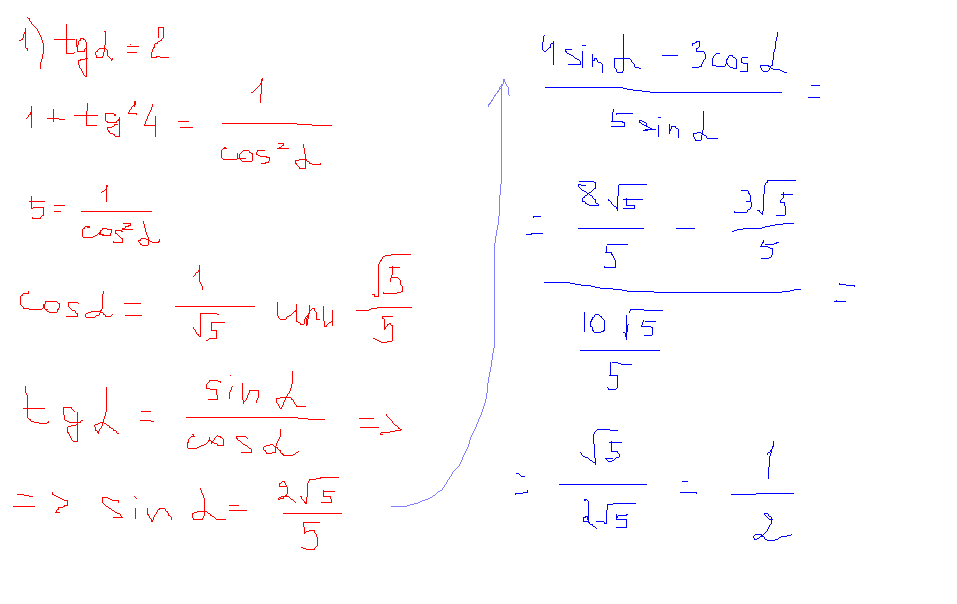 1) tgα = 2
1 + tg²4 = 1/cos²α
5 = 1/cos²α
cosα = 1/√5 или √5/5
tgα = sinα/cosα =>
=> sinα = 2√5/5
(4sinα - 3cosα)/(5sinα) =
= (8√5/5 - 3√5/5)/(10√5/5) =
= √5/2√5 = 1/2